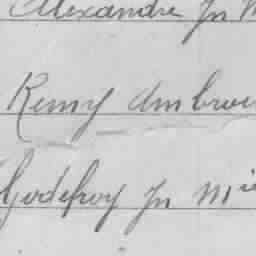 Alexandre Jn
Remy Ambroi
Godefroy Jn Mie